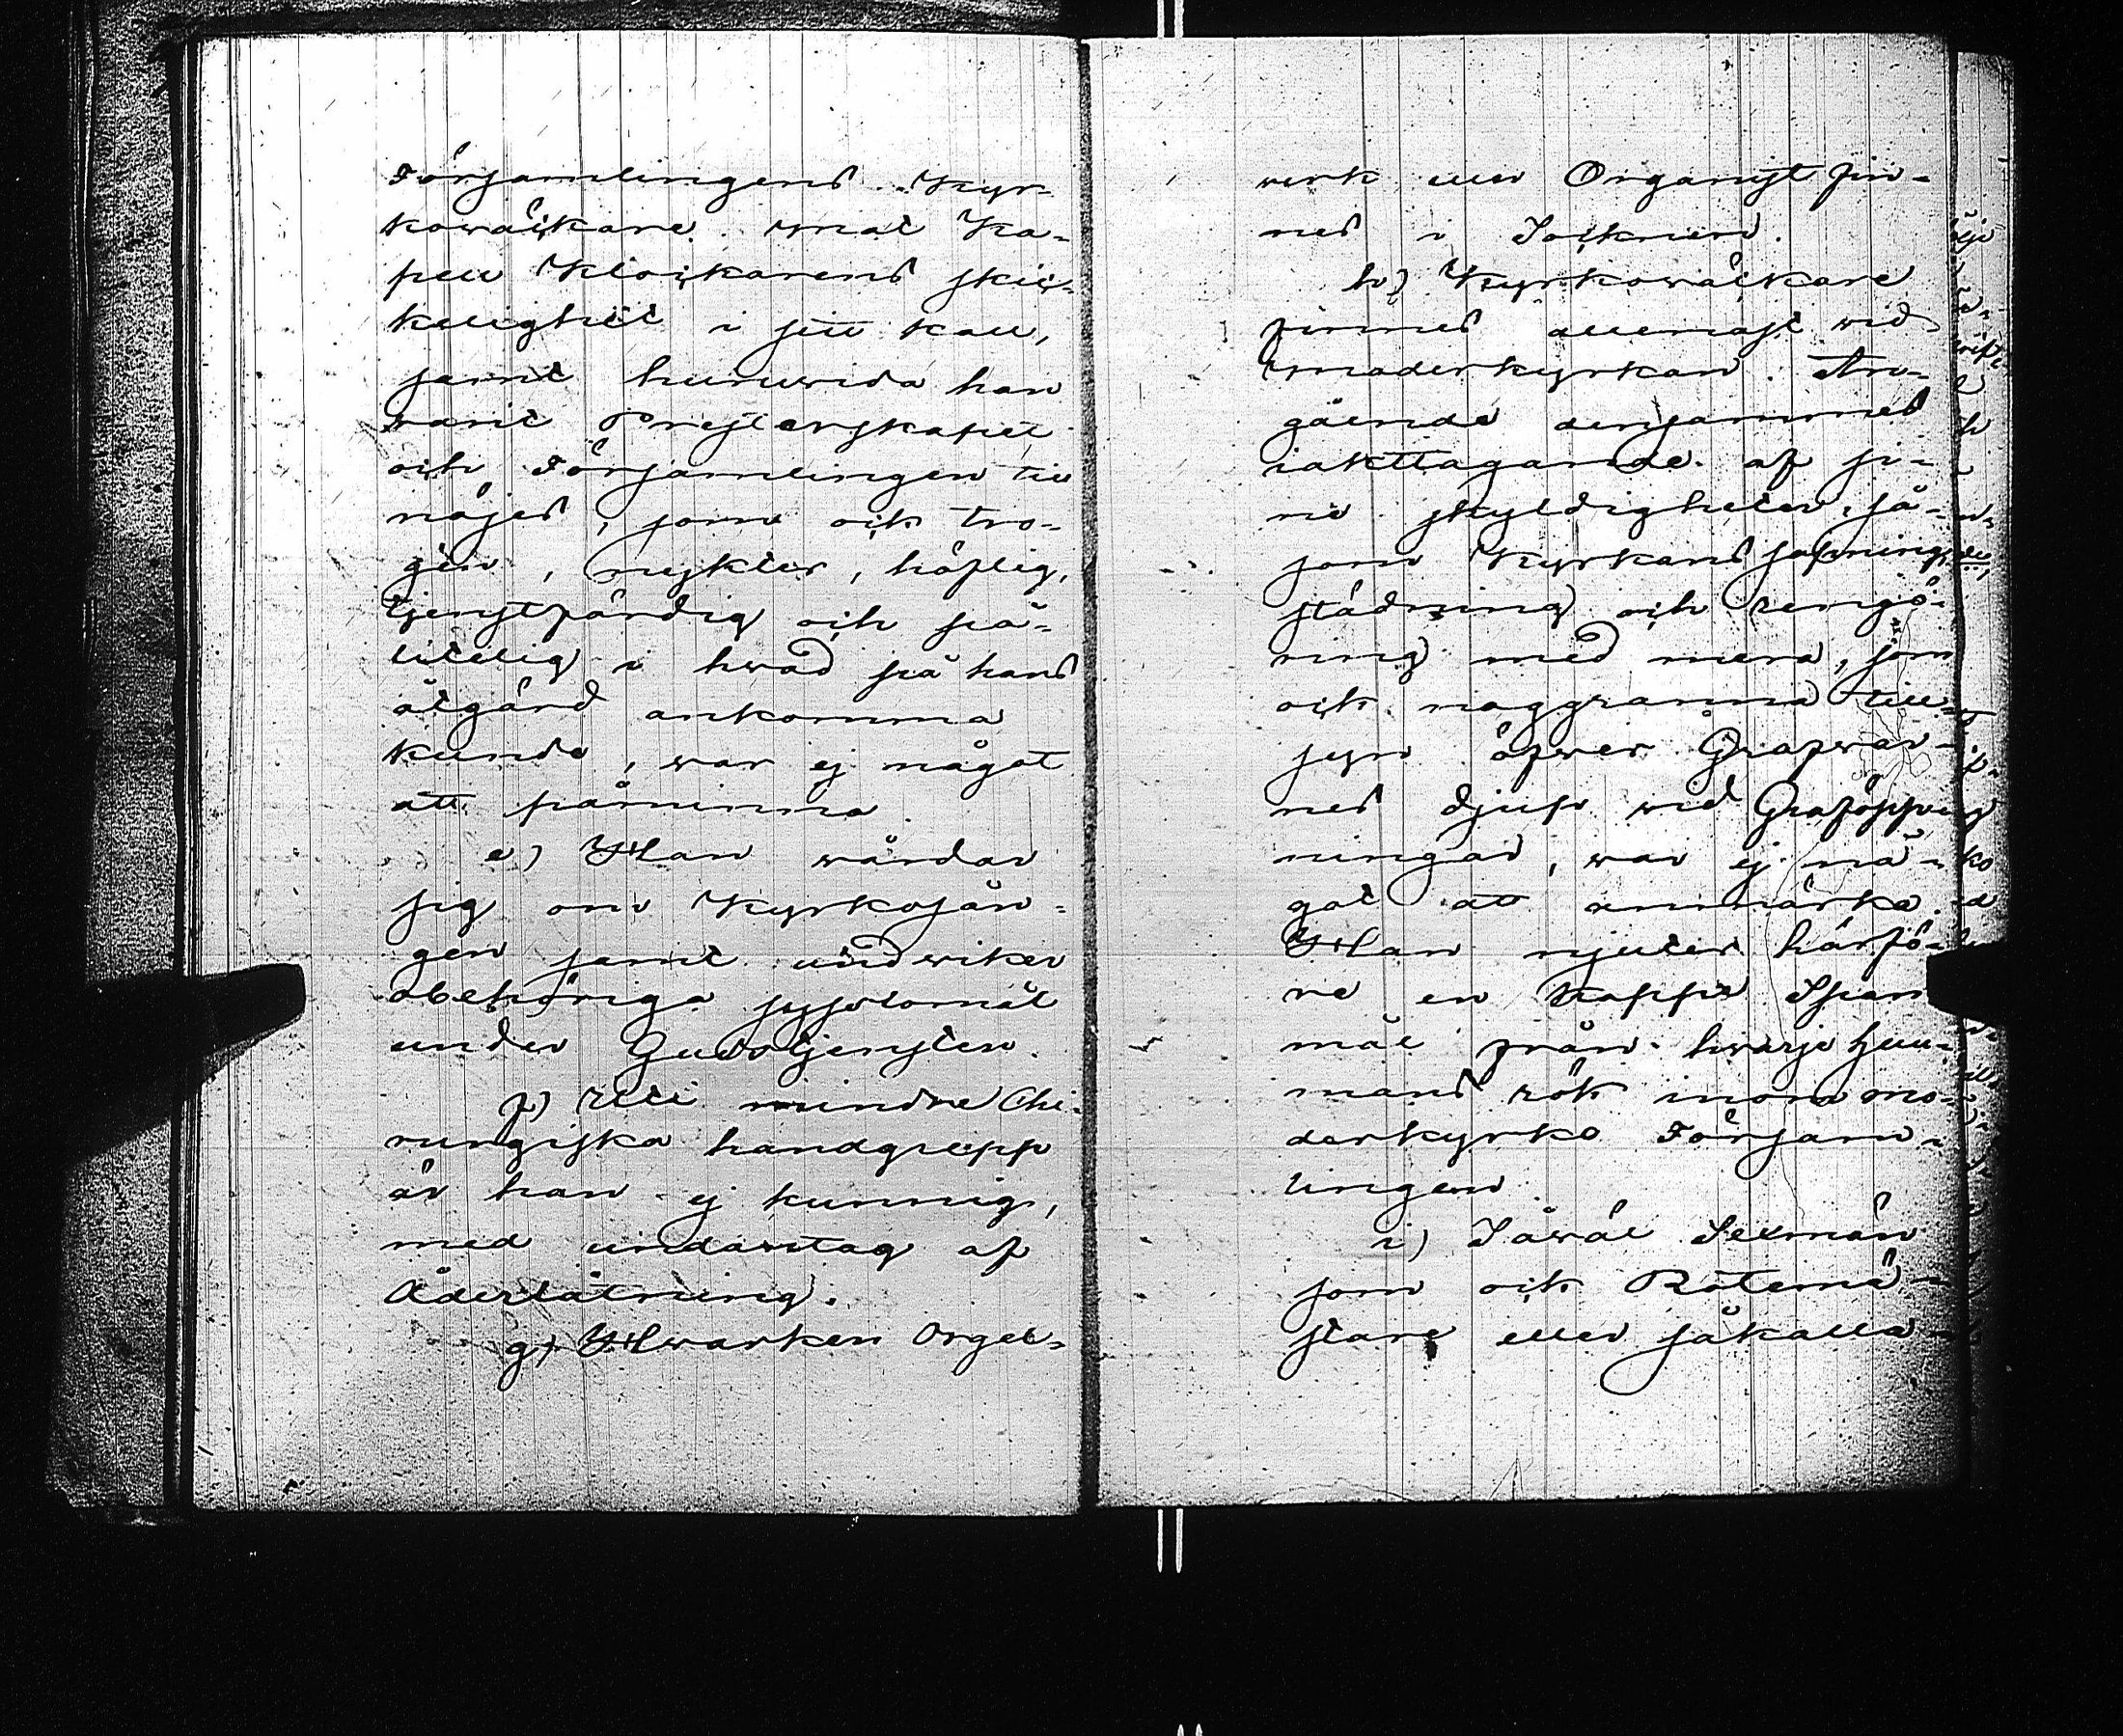 Församlingens Kyr-
kowäckare. emot Ka-
pell Klockarens skic-
kelighet i sitt kall,
samt huruwida han
warit Presterskapet
och Församlingen till
nöjes, som ock tro-
gen, nykter, höflig,
tjenstfärdig och på-
litelig i hwad på hans
åtgärd ankomma
kunde, war ej något
att påminna.
e) Han wårdar
sig om Kyrkosån-
gen samt undwiker
obehöriga sysslomål
under Gudstjensten.
f) Uti mindre Chi-
rurgiska handgrepp
är han ej kunnig,
med undantag af
Åderlåtning.
g) Hwarken Orgel-
werk eller Organist fin-
nes i Socknen.
h) Kyrkowäckare
finnes allenast wid
moderkyrkan. An-
gående densammes
iakttagande af si-
ne skyldigheter, så-
som Kyrkans sopning,
städning och rengö-
ring med mera, som
ock noggranna till-
syn öfwer Grafwar-
nes djup wid Graföpp-
ningar, war ej nå-
got att anmärka.
Han njuter härfö-
re en kappe Span-
mål från hwarje
mans rök inom mo-
derkyrko Försam-
lingen.
i) Såwäl Sexmän
som ock Rotemä-
stare eller såkalla-